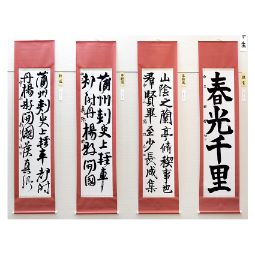 春光千里
山陰之蘭亭脩禊事也
群賢畢至少長咸集
蒲州刺史上輕車
都尉丹楊縣開國
蒲州刺史上輕車都尉
丹楊縣開國侯真卿